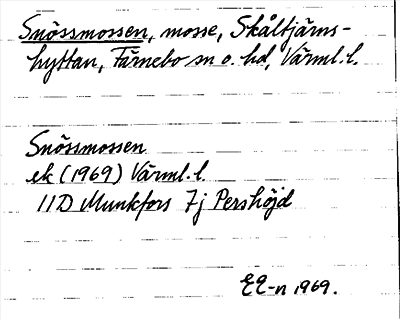 Snössmossen, mosse, Skåltjärns-
hyttan, Färnebo sn o. hd, Värml. l.
Snössmossen
ek (1969) Värml. l.
11D Munkfors 7j Pershöjd
EE-n 1969.